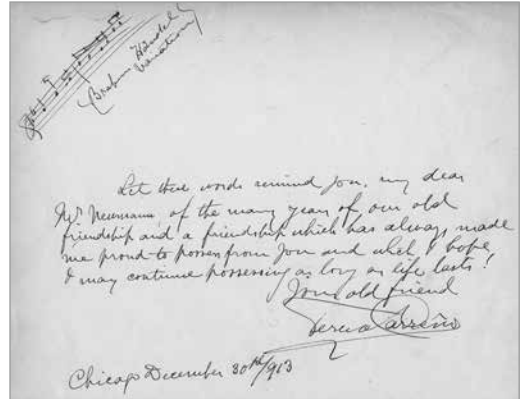 Brahms Händel
Variations
Let these words remind you, my dear
Mr Neumann, of the many years of our old
friendship and a friendship which has always made
me proud to possess from you and which I hope
I may continue possessing as long as life lasts!
Your old friend
Teresa Carreño
Chicago December 30th/913